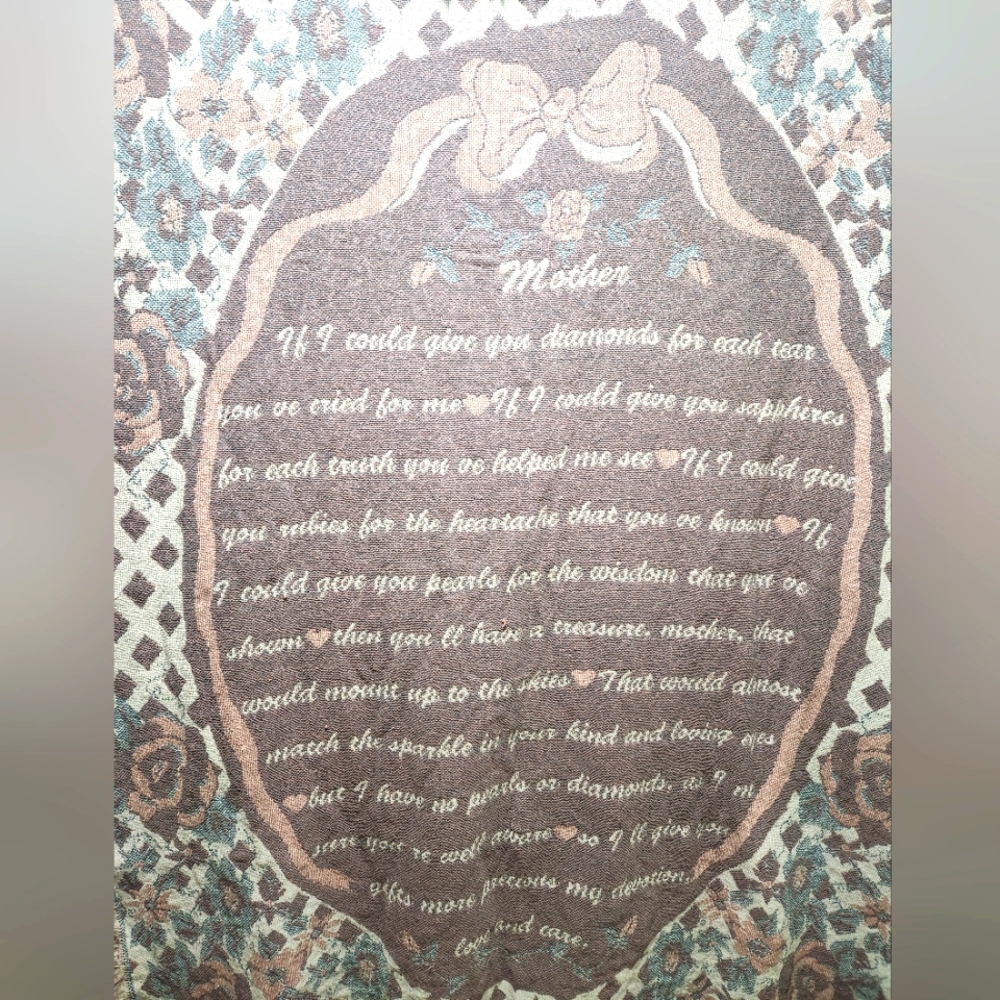 Mother
If I could give you diamonds for each tear
you ve cried for me If I could give you sapphires
for each truth you ve helped me see If I could give
you rubies for the heartache that you ve known If
I could give you pearls for the wisdom that you ve
shown then you ll have a treasure, mother, that
would mount up to the skies That would almost
match the sparkle in your kind and loving eyes
but I have no pearls or diamonds, as I m
sure you re well aware so I ll give you
gifts more precious my devotion,
love and care.